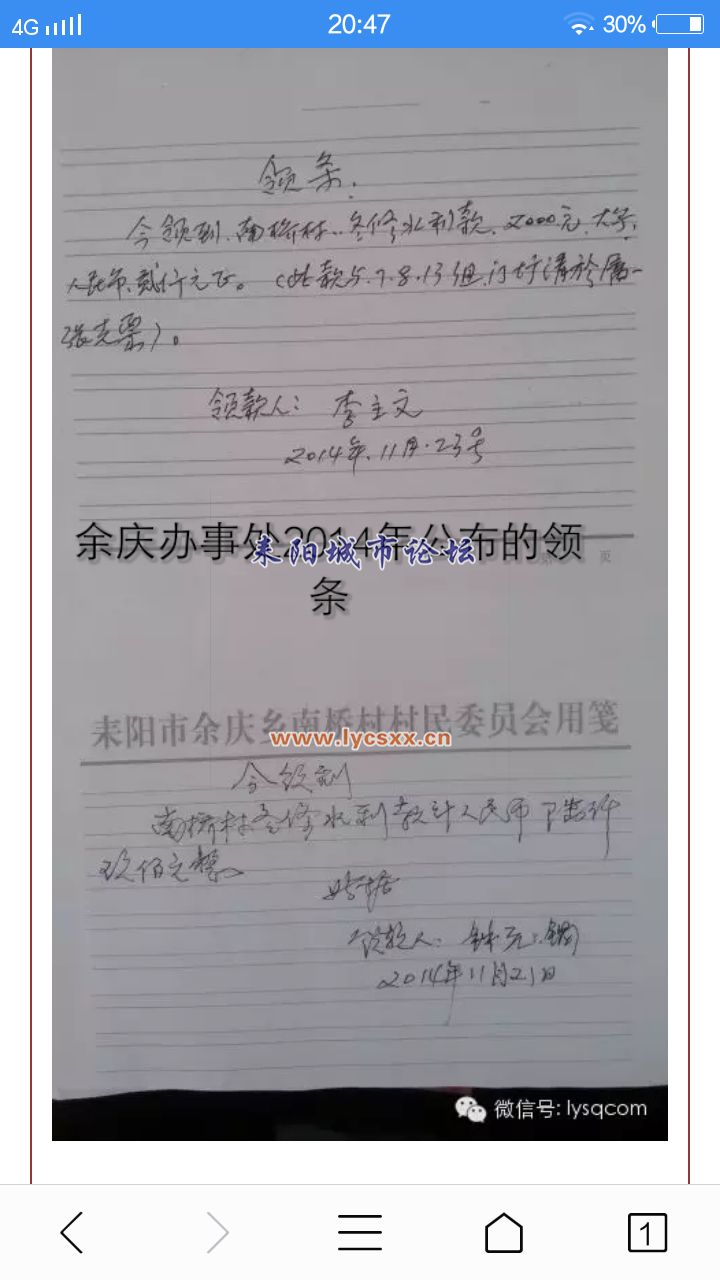 4G 20:47 30%
领条.
今领到南桥村..冬修水利款.2000.元.大写.
人民币.贰仟元正。(此款与.7.8.13组
张克票)。
领款人: 李主文
2014年.11月.23号
余庆办事处2014年公布的领
耒阳城市论坛
页
条
耒阳市余庆乡南桥村村民委员会用笺
www.lycsxx.cn
今领到
南桥村冬修水利款计人民币
玖佰元整
此据
领款人
2014年11月21日
微信号: lysqcom
1